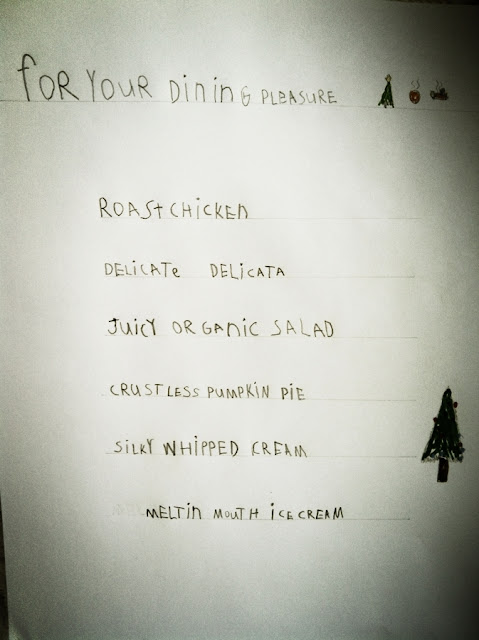 foR YOUR DininG PLEASURE
ROASt CHiCKEn
DELiCATe DELiCATA
JUiCY ORGAniC SALAD
CRUSTLESS PUMPKiN PIE
SiLKY WHiPPED CREAM
MELTin MOUTH iCE CREAM